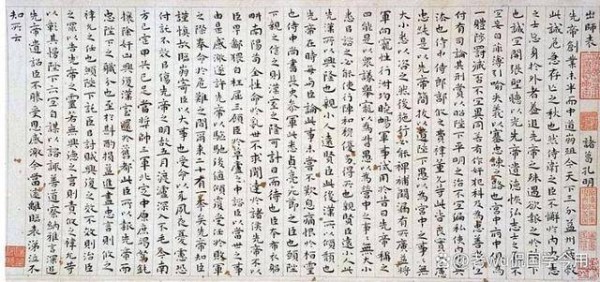 出師表　諸葛孔明
先帝創業未半而中道崩殂今天下三分益州疲
弊此誠危急存亡之秋也然侍衛之臣不懈於內忠志
之士忘身於外者蓋追先帝之殊遇欲報之於陛下
也誠宜開張聖聽以光先帝遺德恢弘志士之氣不
宜妄自菲薄引喻失義以塞忠諫之路也宮中府中俱為
一體陟罰臧否不宜異同若有作奸犯科及為忠善者宜
付有司論其刑賞以昭陛下平明之治不宜偏私使內外異
法也侍中侍郎郭攸之費禕董允等此皆良實志慮
忠純是以先帝簡拔以遺陛下愚以為宮中之事事無
大小悉以咨之然後施行必能裨補闕漏有所廣益將
軍向寵性行淑均曉暢軍事試用於昔日先帝稱之曰
能是以眾議舉寵以為督愚以為營中之事事無大小
悉以咨之必能使行陣和穆優劣得所也親賢臣遠小人此
先漢所以興隆也親小人遠賢臣此後漢所以傾頹也
先帝在時每與臣論此事未嘗不歎息痛恨於桓靈
也侍中尚書長史參軍此悉貞亮死節之臣也願陛
下親之信之則漢室之隆可計日而待也臣本布衣躬
耕南陽苟全性命於亂世不求聞達於諸侯先帝不以
臣卑鄙猥自枉屈三顧臣於草廬之中諮臣以當世之事
由是感激遂許先帝以驅馳後值傾覆受任於敗軍
之際奉命於危難之間爾來二十有一年矣先帝知臣
謹慎故臨崩寄臣以大事也受命以來夙夜憂慮恐
付託不效以傷先帝之明故五月渡瀘深入不毛今南
方已定甲兵已足當獎帥三軍北定中原庶竭駑鈍
攘除奸凶興復漢室還於舊都此臣所以報先帝而
忠陛下之職分也至於斟酌損益進盡忠言則攸之
禕允之任也願陛下託臣以討賊興復之效不效則治臣
之罪以告先帝之靈若無興德之言則責攸之禕允等
以彰其慢陛下亦宜自謀以諮諏善道察納雅言深追
先帝遺詔臣不勝受恩感激今當遠離臨表涕泣不
知所云